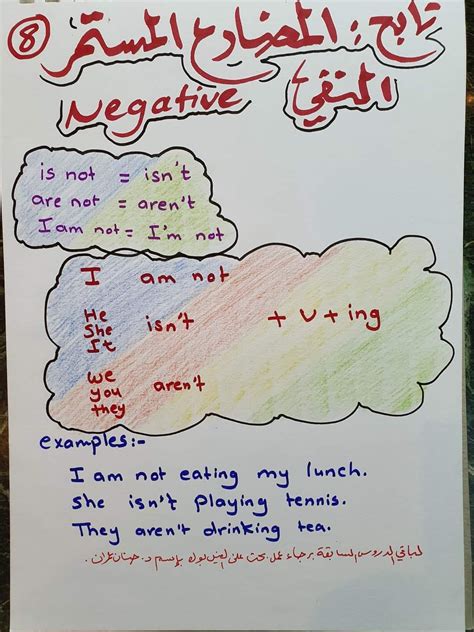 8
تابع: المضارع المستمر
المنفي
Negative
is not = isn't
are not = aren't
I am not = I'm not
I am not
He
She isn't + v + ing
It
we
you aren't
they
examples:-
I am not eating my lunch.
She isn't playing tennis.
They aren't drinking tea.
لباقي الدروس السابقة برجاء عمل بحث على الفيس بوك بإسم د. حنان